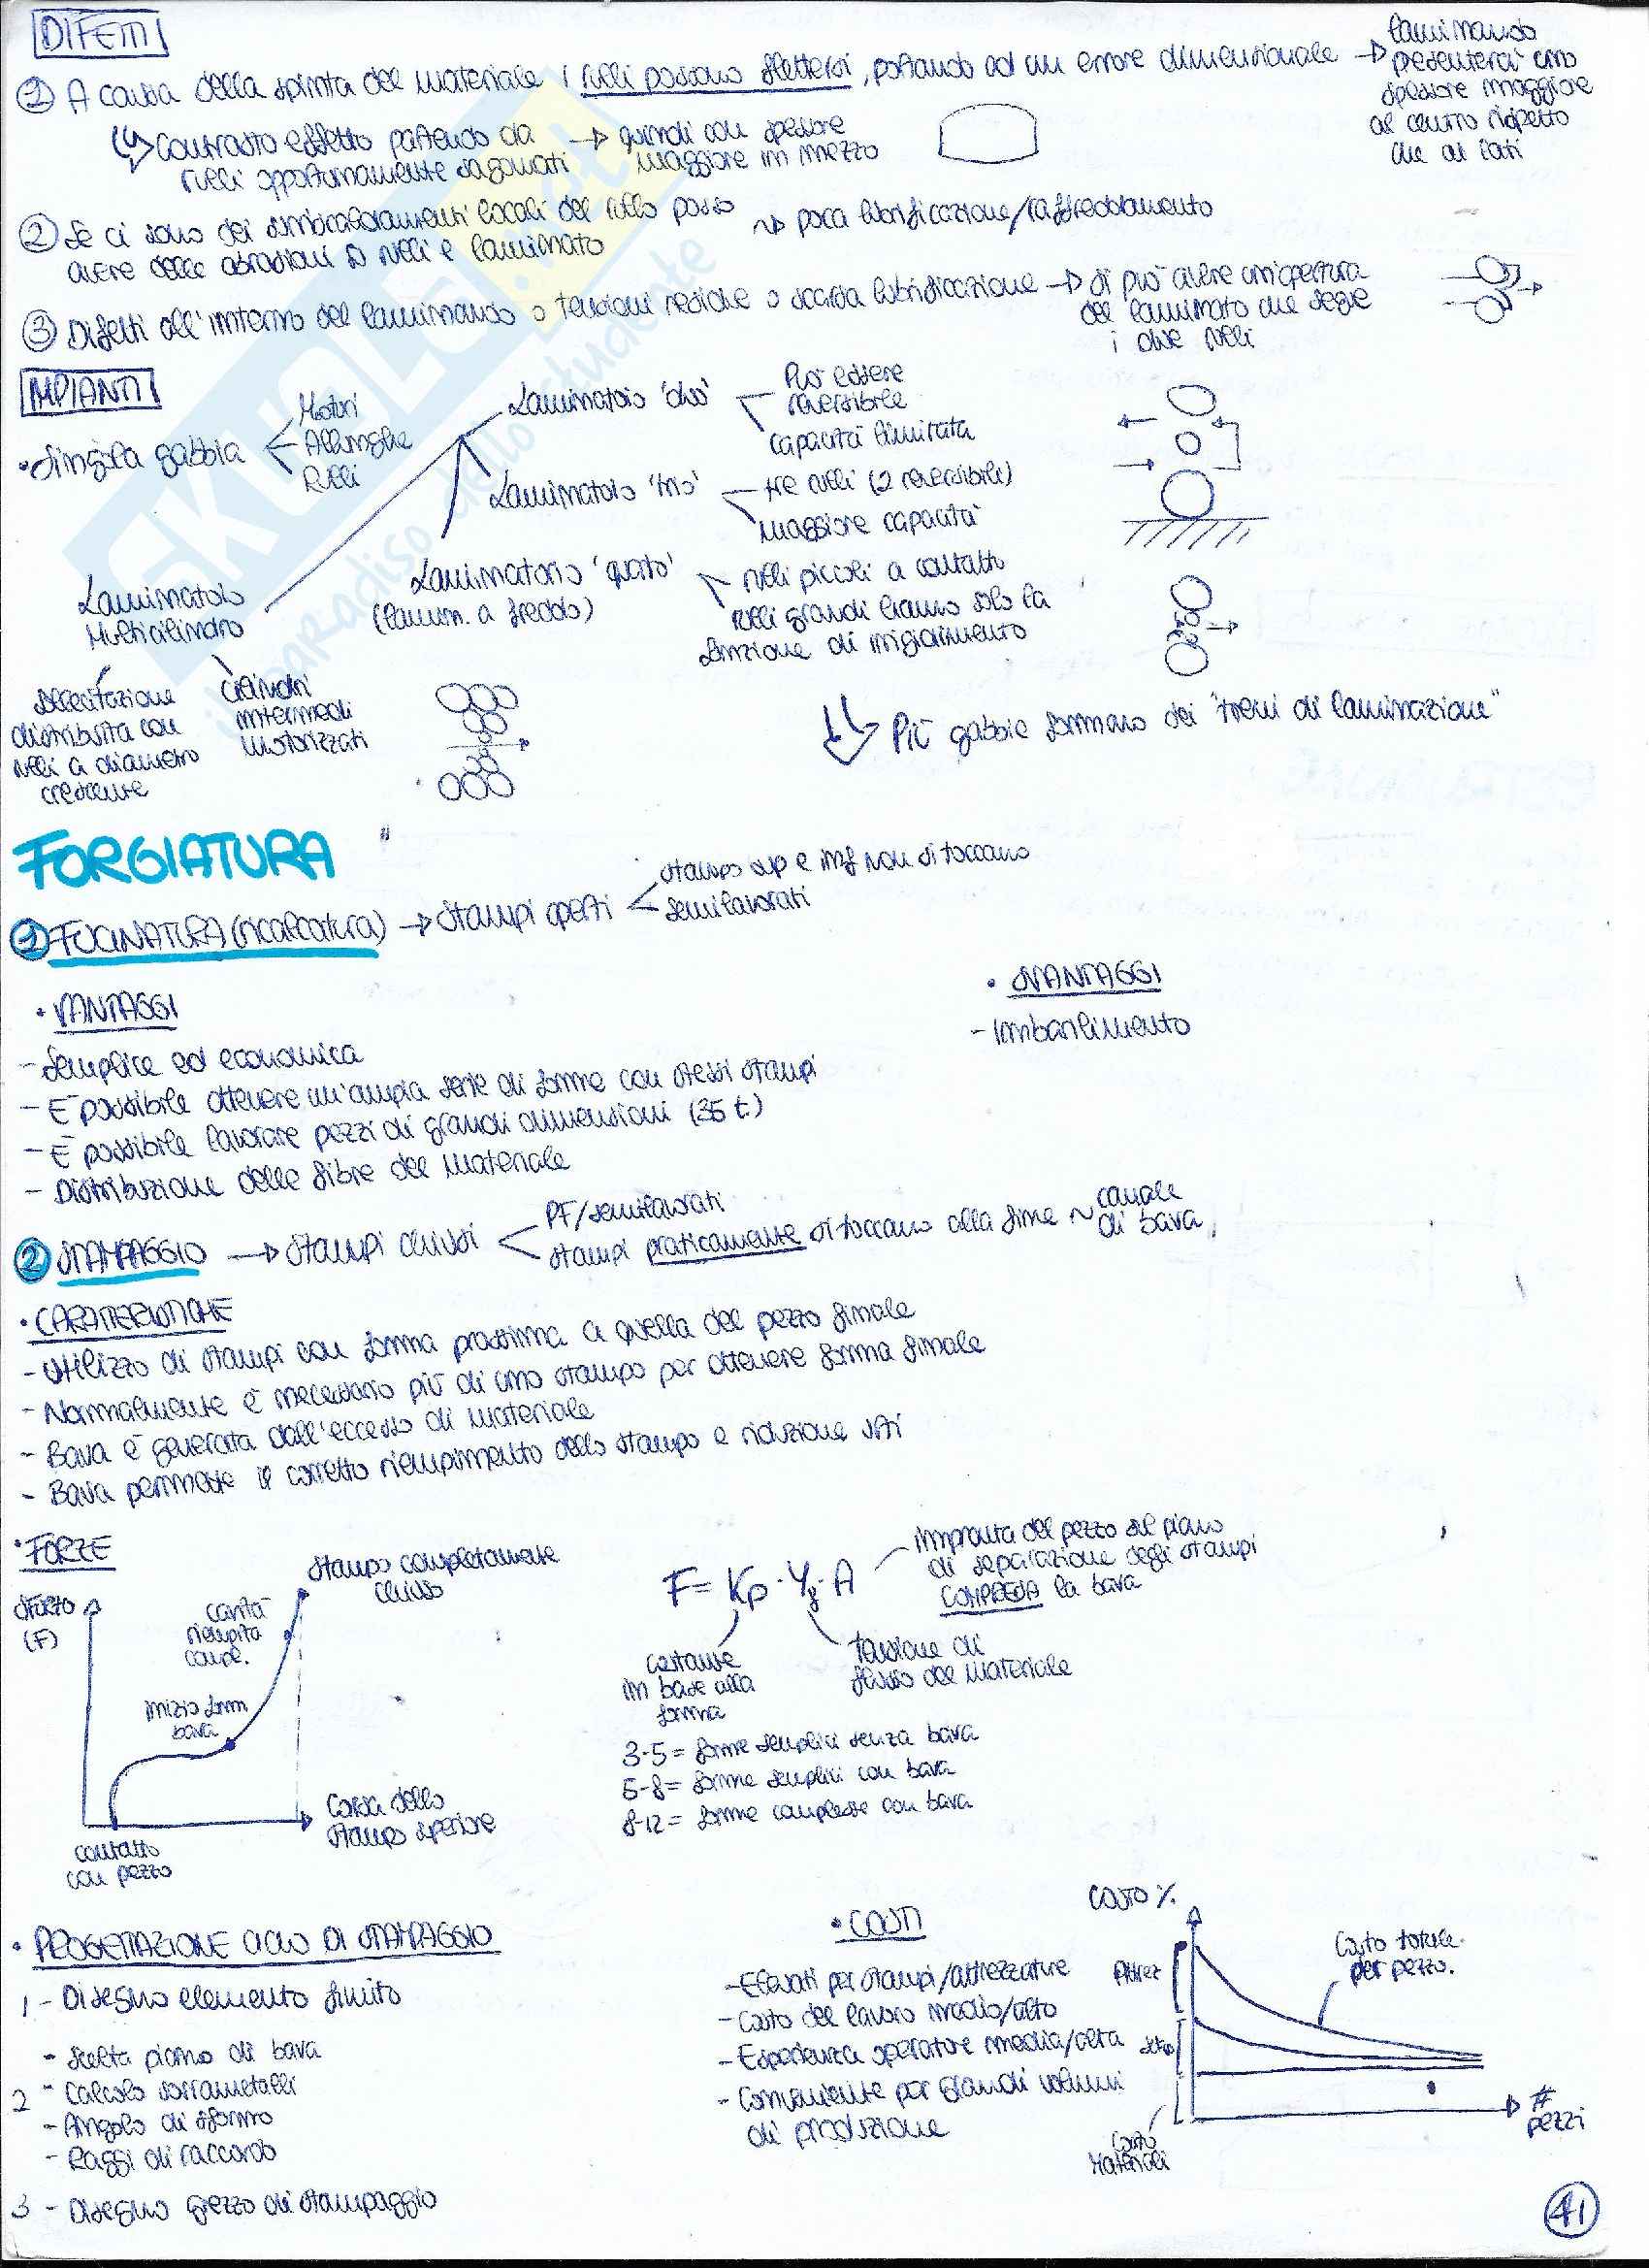 DIFETTI
① A causa della spinta del materiale i rulli possono flettersi, portando ad un errore dimensionale → laminando
presenterà uno
spessore maggiore
al centro rispetto
che ai lati
Contrasto effetto partendo da
rulli opportunamente sagomati
→ quindi con spessore
maggiore in mezzo
② Se ci sono dei surriscaldamenti locali del rullo posso
avere delle abrasioni di rulli e laminato
poca lubrificazione/raffreddamento
③ Difetti all'interno del laminando o tensioni residue o scarsa lubrificazione → si può avere un'apertura
del laminato che segue
i due rulli
IMPIANTI
• Singola gabbia
Motori
Allunghe
Rulli
Laminatoio 'duo'
Può essere
reversibile
capacità limitata
Laminatoio 'trio'
tre rulli (2 reversibile)
maggiore capacità
Laminatoio 'quarto'
(lamin. a freddo)
rulli piccoli a contatto
rulli grandi hanno solo la
funzione di irrigidimento
Laminatoio
Multicilindro
Sollecitazione
distribuita con
rulli a diametro
crescente
Cilindri
intermedi
motorizzati
Più gabbie formano dei "treni di laminazione"
FORGIATURA
① FUCINATURA (ricalcatura) → Stampi aperti
stampo sup e inf non si toccano
semilavorati
• VANTAGGI
- Semplice ed economica
- È possibile ottenere un'ampia serie di forme con stessi stampi
- È possibile lavorare pezzi di grandi dimensioni (35 t)
- Distribuzione delle fibre del materiale
• SVANTAGGI
- Imbarilimento
② STAMPAGGIO → Stampi chiusi
PF/semilavorati
stampi praticamente si toccano alla fine ~ canale
di bava
• CARATTERISTICHE
- Utilizzo di stampi con forma prossima a quella del pezzo finale
- Normalmente è necessario più di uno stampo per ottenere forma finale
- Bava è generata dall'eccesso di materiale
- Bava permette il corretto riempimento dello stampo e riduzione urti
• FORZE
Sforzo
(F)
stampo completamente
chiuso
cavità
riempita
compl.
inizio form.
bava
contatto
con pezzo
Corsa dello
stampo superiore
F = Kp · Yf · A
impronta del pezzo sul piano
di separazione degli stampi
COMPRESA la bava
costante
in base alla
forma
tensione di
flusso del materiale
3-5 = forme semplici senza bava
5-8 = forme semplici con bava
8-12 = forme complesse con bava
• PROGETTAZIONE CICLO DI STAMPAGGIO
1 - Disegno elemento finito
2 - Scelta piano di bava
- Calcolo sovrametalli
- Angolo di sformo
- Raggi di raccordo
3 - Disegno grezzo di stampaggio
• COSTI
- Elevati per stampi/attrezzature
- Costo del lavoro medio/alto
- Esperienza operatore media/alta
- Conveniente per grandi volumi
di produzione
Costo %
Attrez
Setup
Costo
Materiali
Costo totale
per pezzo.
#
pezzi
41